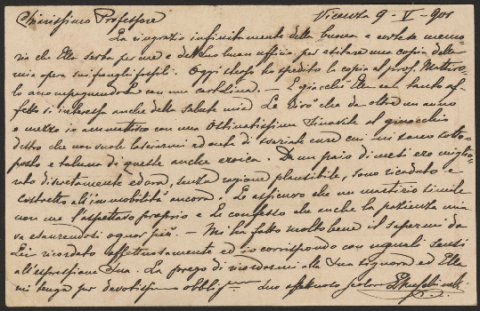 Chiarissimo Professore Vicenza 9-V-901
La ringrazio infinitamente della buona e cortese memo
ria che Ella serba per me e del suo buon ufficio per esitare una copia della
mia opera sui funghi fossili. Oggi stesso ho spedito la copia al prof. Mattiro
lo accompagnandola con una cartolina. — E giacchè Ella con tanto af-
fetto si interessa anche della salute mia Le dirò che da oltre un anno
e mezzo io ammattisco con una ostinatissima sinovite al ginocchio
destro che non vuole lasciarmi ad onta di svariate cure cui mi sono sotto-
posto e taluna di queste anche eroica. Da un paio di mesi ero miglio-
rato discretamente ed ora, senza cagione plausibile, sono ricaduto e
costretto all'immobilità ancora. Le assicuro che un martirio simile
non me l'aspettavo proprio e Le confesso che anche la pazienza mia
va esaurendosi ognor più. — Mi ha fatto molto bene il sapermi da
Lei ricordato affettuosamente ed io corrispondo con uguali sensi
all'espressione Sua. La prego di ricordarmi alla Sua signora ed Ella
mi tenga per devotissimo obblig.mo suo affettuoso